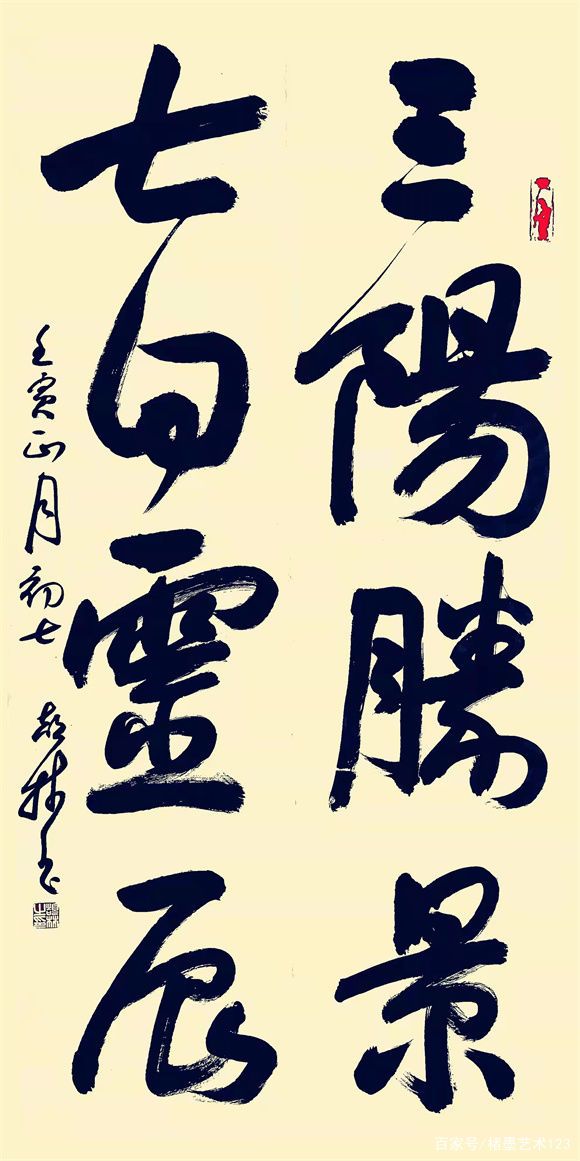 三陽勝景
七日靈辰
壬寅正月初七 林书
百家号/楮墨艺术123